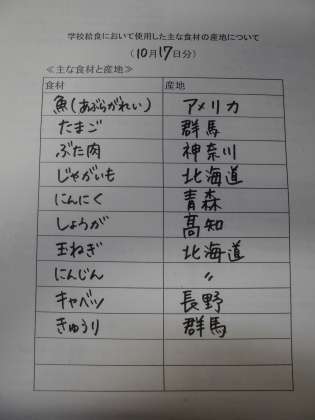 学校給食において使用した主な食材の産地について
(10月17日分)
≪主な食材と産地≫
食材 産地
魚(あぶらがれい) アメリカ
たまご 群馬
ぶた肉 神奈川
じゃがいも 北海道
にんにく 青森
しょうが 高知
玉ねぎ 北海道
にんじん 〃
キャベツ 長野
きゅうり 群馬